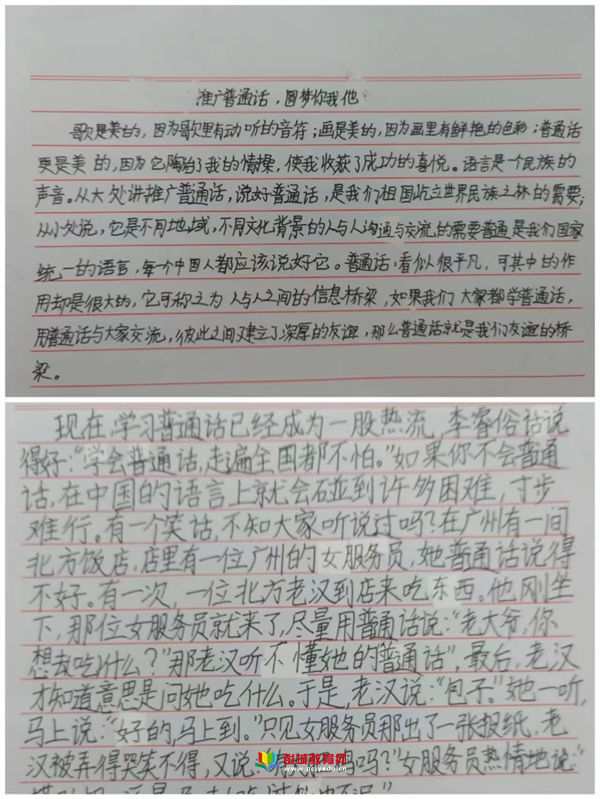 推广普通话，圆梦你我他
歌是美的，因为歌里有动听的音符；画是美的，因为画里有鲜艳的色彩；普通话
更是美的，因为它陶冶了我的情操，使我收获了成功的喜悦。语言是一个民族的
声音。从大处讲推广普通话，说好普通话，是我们祖国屹立世界民族之林的需要；
从小处说，它是不同地域，不同文化背景的人与人沟通与交流的需要普通是我们国家
统一的语言，每个中国人都应该说好它。普通话，看似很平凡，可其中的作
用却是很大的，它可称之为人与人之间的信息桥梁，如果我们大家都学普通话，
用普通话与大家交流，彼此之间建立了深厚的友谊，那么普通话就是我们友谊的桥
梁。
现在，学习普通话已经成为一股热流，李睿俗话说
得好："学会普通话，走遍全国都不怕。"如果你不会普通
话，在中国的语言上就会碰到许多困难，寸步
难行。有一个笑话，不知大家听说过吗？在广州有一间
北方饭店，店里有一位广州的女服务员，她普通话说得
不好。有一次，一位北方老汉到店来吃东西。他刚坐
下，那位女服务员就来了，尽量用普通话说："老大爷，你
想去吃什么？"那老汉听不懂她的普通话"，最后，老汉
才知道意思是问她吃什么。于是，老汉说："包子。"她一听，
马上说："好的，马上到。"只见女服务员那出了一张报纸，老
汉被弄得哭笑不得，又说 吗？"女服务员热情地说："
彭城教育网
www.pcjyedu.cn